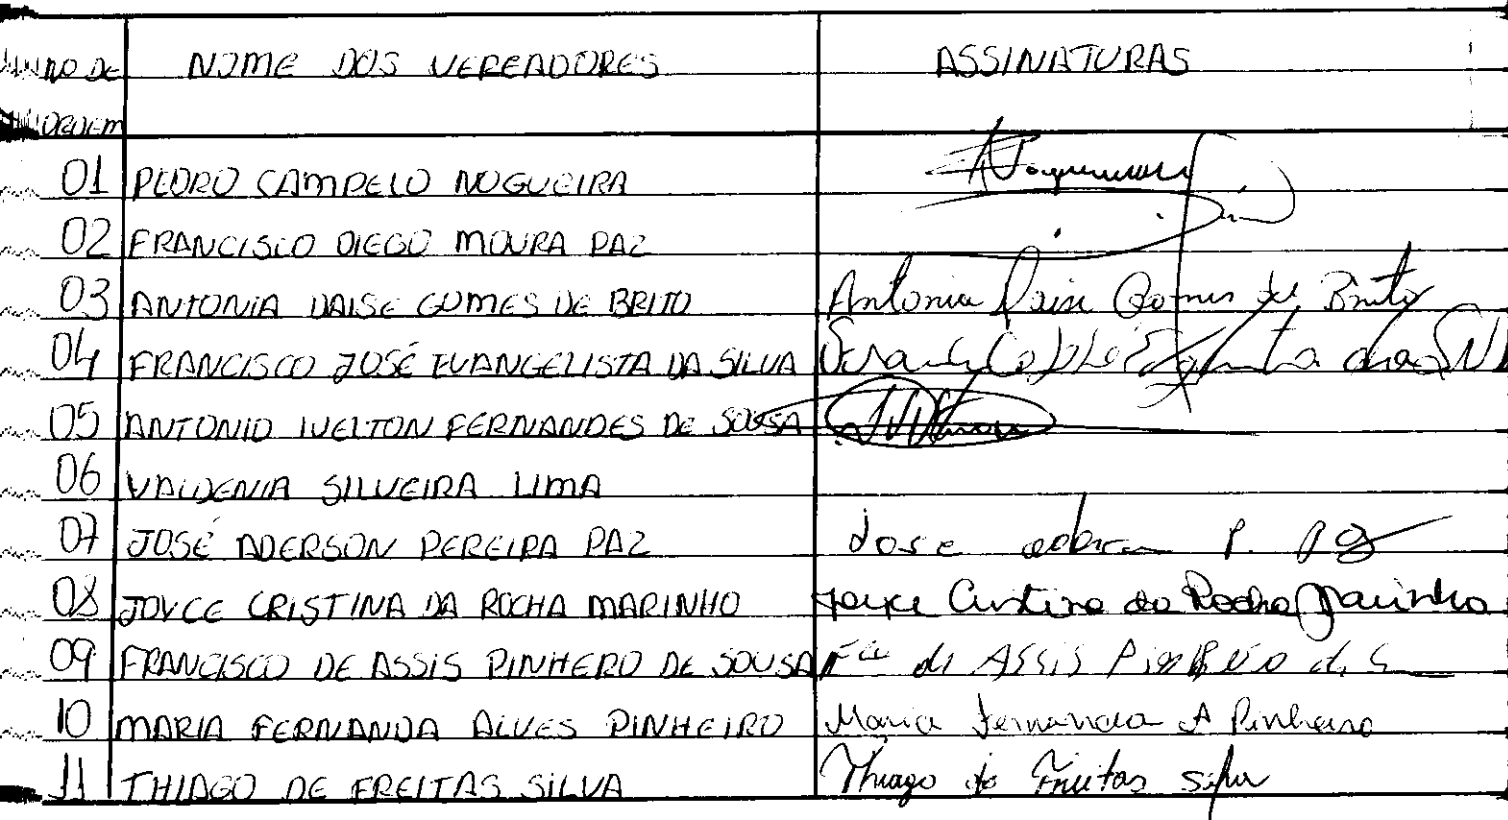 NOME DOS VEREADORES ASSINATURAS
ORDEM
01 PEDRO CAMPELO NOGUEIRA
02 FRANCISCO DIEGO MOURA PAZ
03 ANTONIA DAISE GOMES DE BRITO Antonia Daise Gomes de Brito
04 FRANCISCO JOSÉ EVANGELISTA DA SILVA
05 ANTONIO IVELTON FERNANDES DE SOUSA
06 VALDENIA SILVEIRA LIMA
07 JOSÉ ADERSON PEREIRA PAZ Jose P. Paz
08 JOYCE CRISTINA DA ROCHA MARINHO Joyce Cristina da Rocha Marinho
09 FRANCISCO DE ASSIS PINHERO DE SOUSA Fco de Assis Pinheiro d. S
10 MARIA FERNANDA ALVES PINHEIRO Maria Fernanda A Pinheiro
11 THIAGO DE FREITAS SILVA Thiago de Freitas Silva